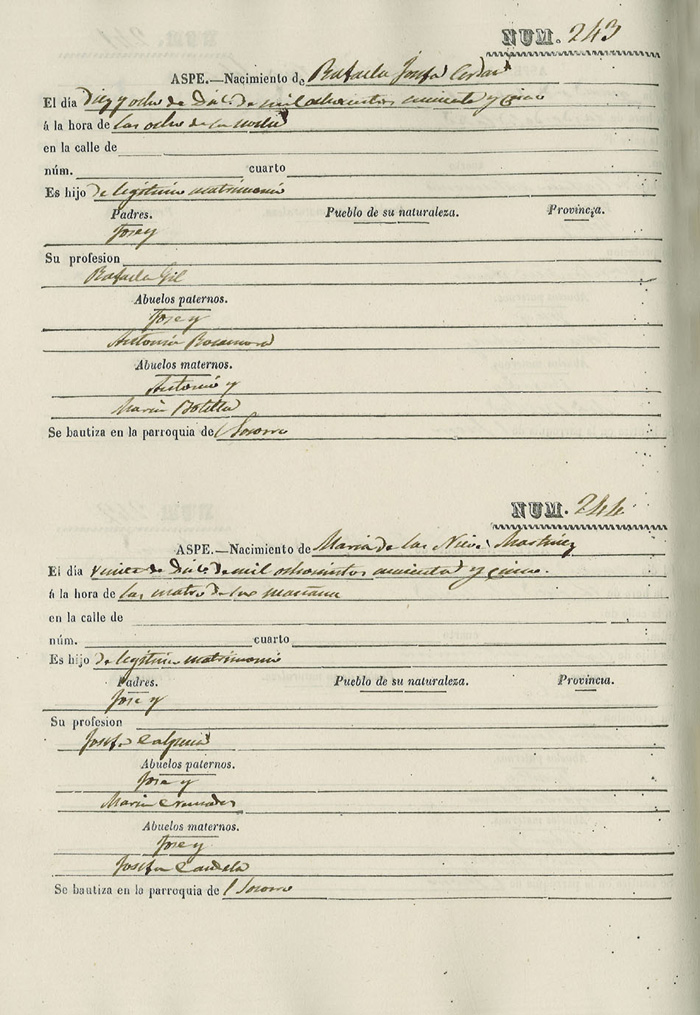 NUM. 243
ASPE.—Nacimiento de Rafaela Josefa Cerdan
El día diez y ocho de Dic.e de mil ochocientos cincuenta y cinco
á la hora de las ocho de la noche
en la calle de
núm. cuarto
Es hijo de legitimo matrimonio
Padres. Pueblo de su naturaleza. Provincia.
Jose y
Su profesion
Rafaela Gil
Abuelos paternos.
Jose y
Antonia
Abuelos maternos.
Antonio y
Maria Botella
Se bautiza en la parroquia de l Socorro
NUM. 244
ASPE.—Nacimiento de Maria de las Nieves Martinez
El día veinte de Dic.e de mil ochocientos cincuenta y cinco.
á la hora de las cuatro de la mañana
en la calle de
núm. cuarto
Es hijo de legitimo matrimonio
Padres. Pueblo de su naturaleza. Provincia.
Jose y
Su profesion
Josefa Calpena
Abuelos paternos.
Jose y
Maria Cremades
Abuelos maternos.
Jose y
Josefa Candela
Se bautiza en la parroquia de l Socorro